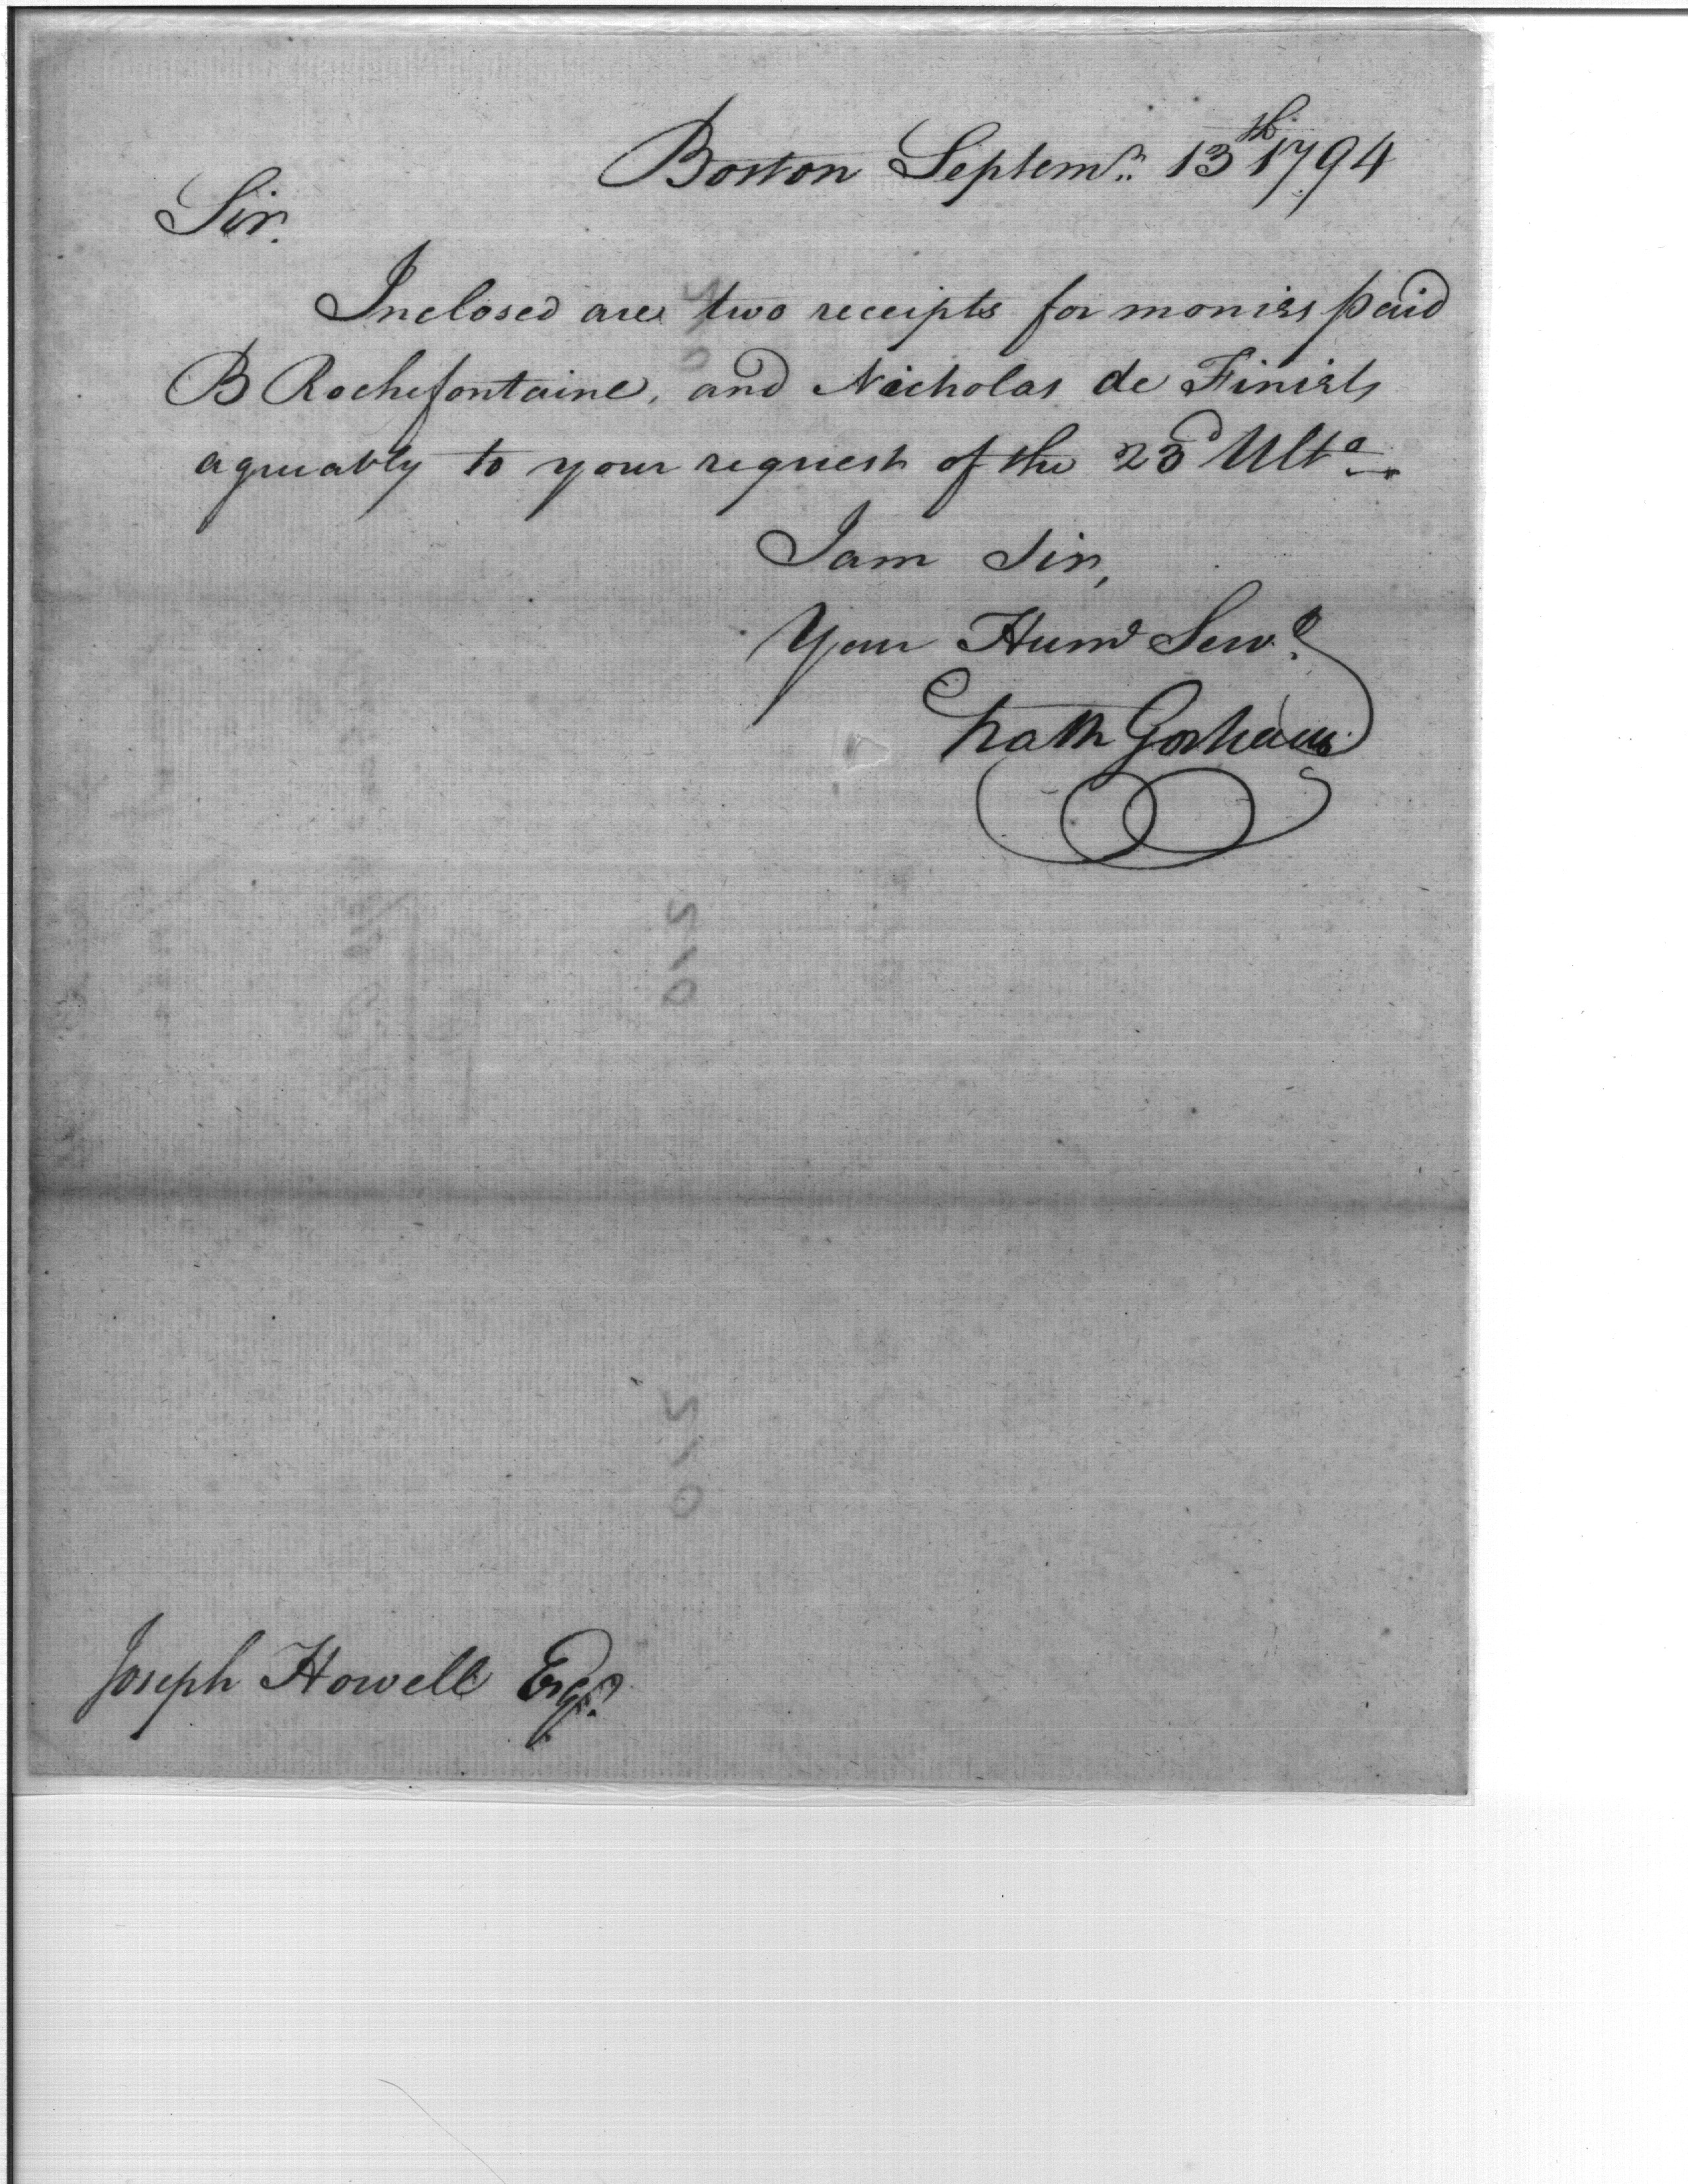 Boston Septemr. 13th 1794
Sir.
Inclosed are two receipts for monies paid
B Rochefontaine, and Nicholas de Finiels
agreeably to your request of the 23d Ulto
I am Sir,
Your Hume Servt
Nath Gorham
Joseph Howell Esqr.